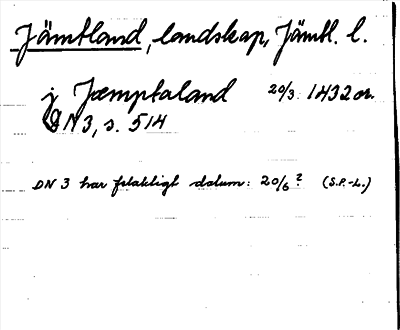 Jämtland, landskap, Jämtl. l.
j Jæmptaland 20/3 1432 or.
DN 3, s. 514
DN 3 har felaktigt datum: 20/6? (S.P.-L.)